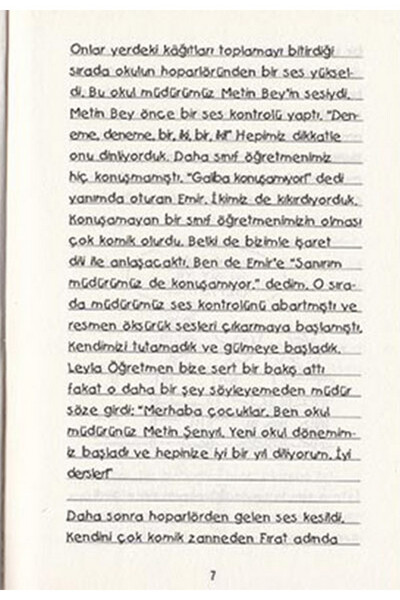 Onlar yerdeki kâğıtları toplamayı bitirdiği
sırada okulun hoparlöründen bir ses yüksel-
di. Bu okul müdürümüz Metin Bey'in sesiydi.
Metin Bey önce bir ses kontrolü yaptı. "Den-
eme, deneme, bir, iki, bir, iki!" Hepimiz dikkatle
onu dinliyorduk. Daha sınıf öğretmenimiz
hiç konuşmamıştı. "Galiba konuşamıyor!" dedi
yanımda oturan Emir. İkimiz de kıkırdıyorduk.
Konuşamayan bir sınıf öğretmenimizin olması
çok komik olurdu. Belki de bizimle işaret
dili ile anlaşacaktı. Ben de Emir'e "Sanırım
müdürümüz de konuşamıyor." dedim. O sıra-
da müdürümüz ses kontrolünü abartmıştı ve
resmen öksürük sesleri çıkarmaya başlamıştı.
Kendimizi tutamadık ve gülmeye başladık.
Leyla Öğretmen bize sert bir bakış attı
fakat o daha bir şey söyleyemeden müdür
söze girdi: "Merhaba çocuklar. Ben okul
müdürünüz Metin Şenyıl. Yeni okul dönemim-
iz başladı ve hepinize iyi bir yıl diliyorum. İyi
dersler!"
Daha sonra hoparlörden gelen ses kesildi.
Kendini çok komik zanneden Fırat adında
7